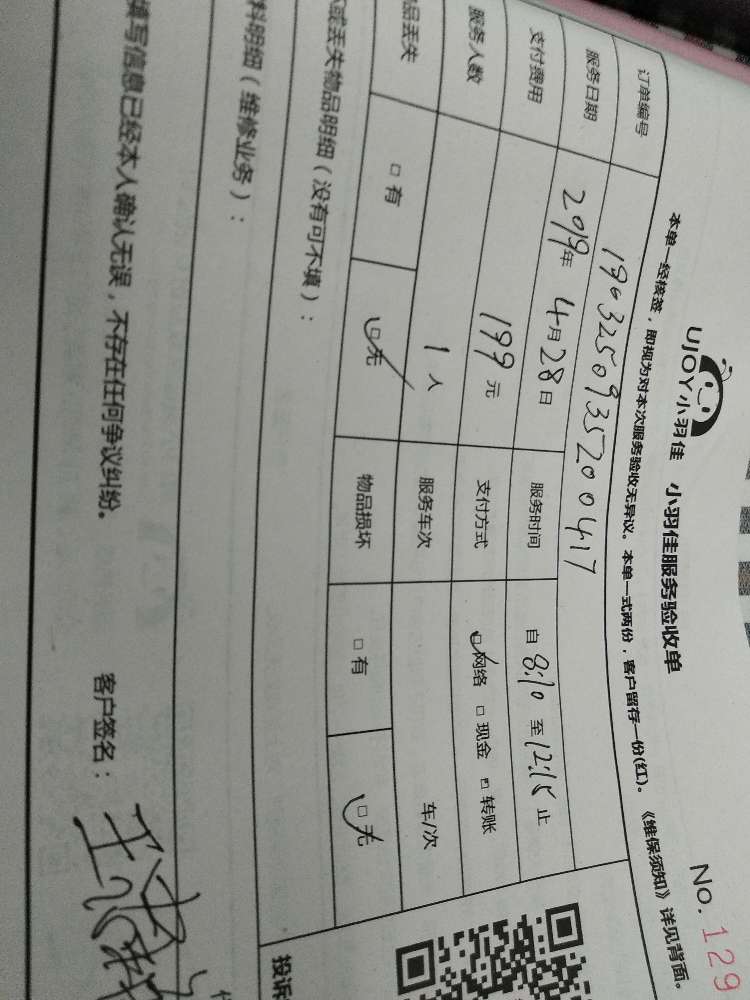 UJOY小羽佳 小羽佳服务验收单 No. 129
本单一经核签，即视为对本次服务验收无异议。本单一式两份，客户留存一份(红)。《维保须知》详见背面。
订单编号 1903250935200417
服务日期 2019年 4月28日 服务时间 自 8:10 至 12:15 止
支付费用 199 元 支付方式 □网络 □现金 □转账
服务人数 1 人 服务车次 车/次
品丢失 □有 □无 物品损坏 □有 □无
或丢失物品明细（没有可不填）：
料明细（维修业务）：
投诉
填写信息已经本人确认无误，不存在任何争议纠纷。 客户签名：